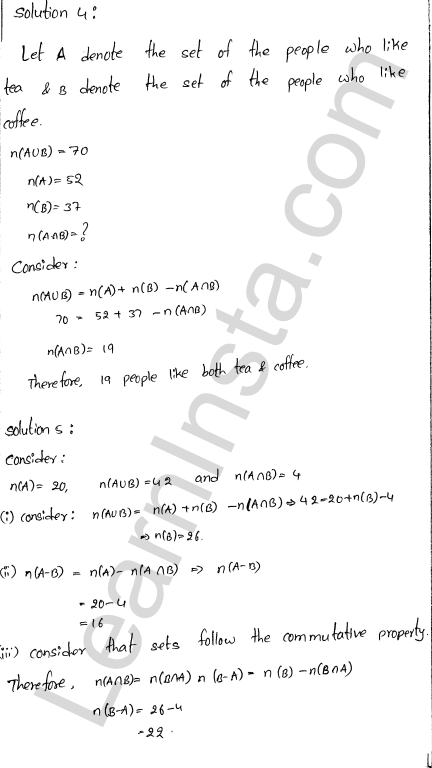 Solution 4:
Let A denote the set of the people who like
tea & B denote the set of the people who like
coffee.
n(A∪B) = 70
n(A) = 52
n(B) = 37
n(A∩B) = ?
Consider:
n(A∪B) = n(A) + n(B) - n(A∩B)
70 = 52 + 37 - n(A∩B)
n(A∩B) = 19
Therefore, 19 people like both tea & coffee.
Solution 5:
Consider:
n(A) = 20, n(A∪B) = 42 and n(A∩B) = 4
(i) consider: n(A∪B) = n(A) + n(B) - n(A∩B) ⇒ 42 = 20 + n(B) - 4
⇒ n(B) = 26.
(ii) n(A-B) = n(A) - n(A∩B) ⇒ n(A-B)
= 20-4
= 16
(iii) consider that sets follow the commutative property.
Therefore, n(A∩B) = n(B∩A) n(B-A) = n(B) - n(B∩A)
n(B-A) = 26-4
= 22.
LearnInsta.com